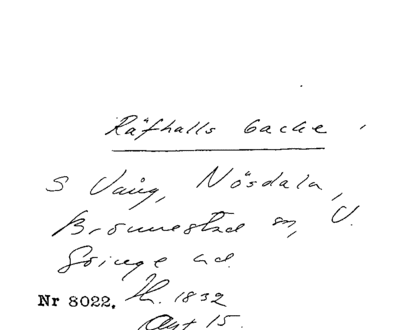 Räfhalls backe
S Vång, Nösdala,
Brönnestad sn, V.
Göinge hd.
Nr 8022. Lh. 1832
Akt 15.